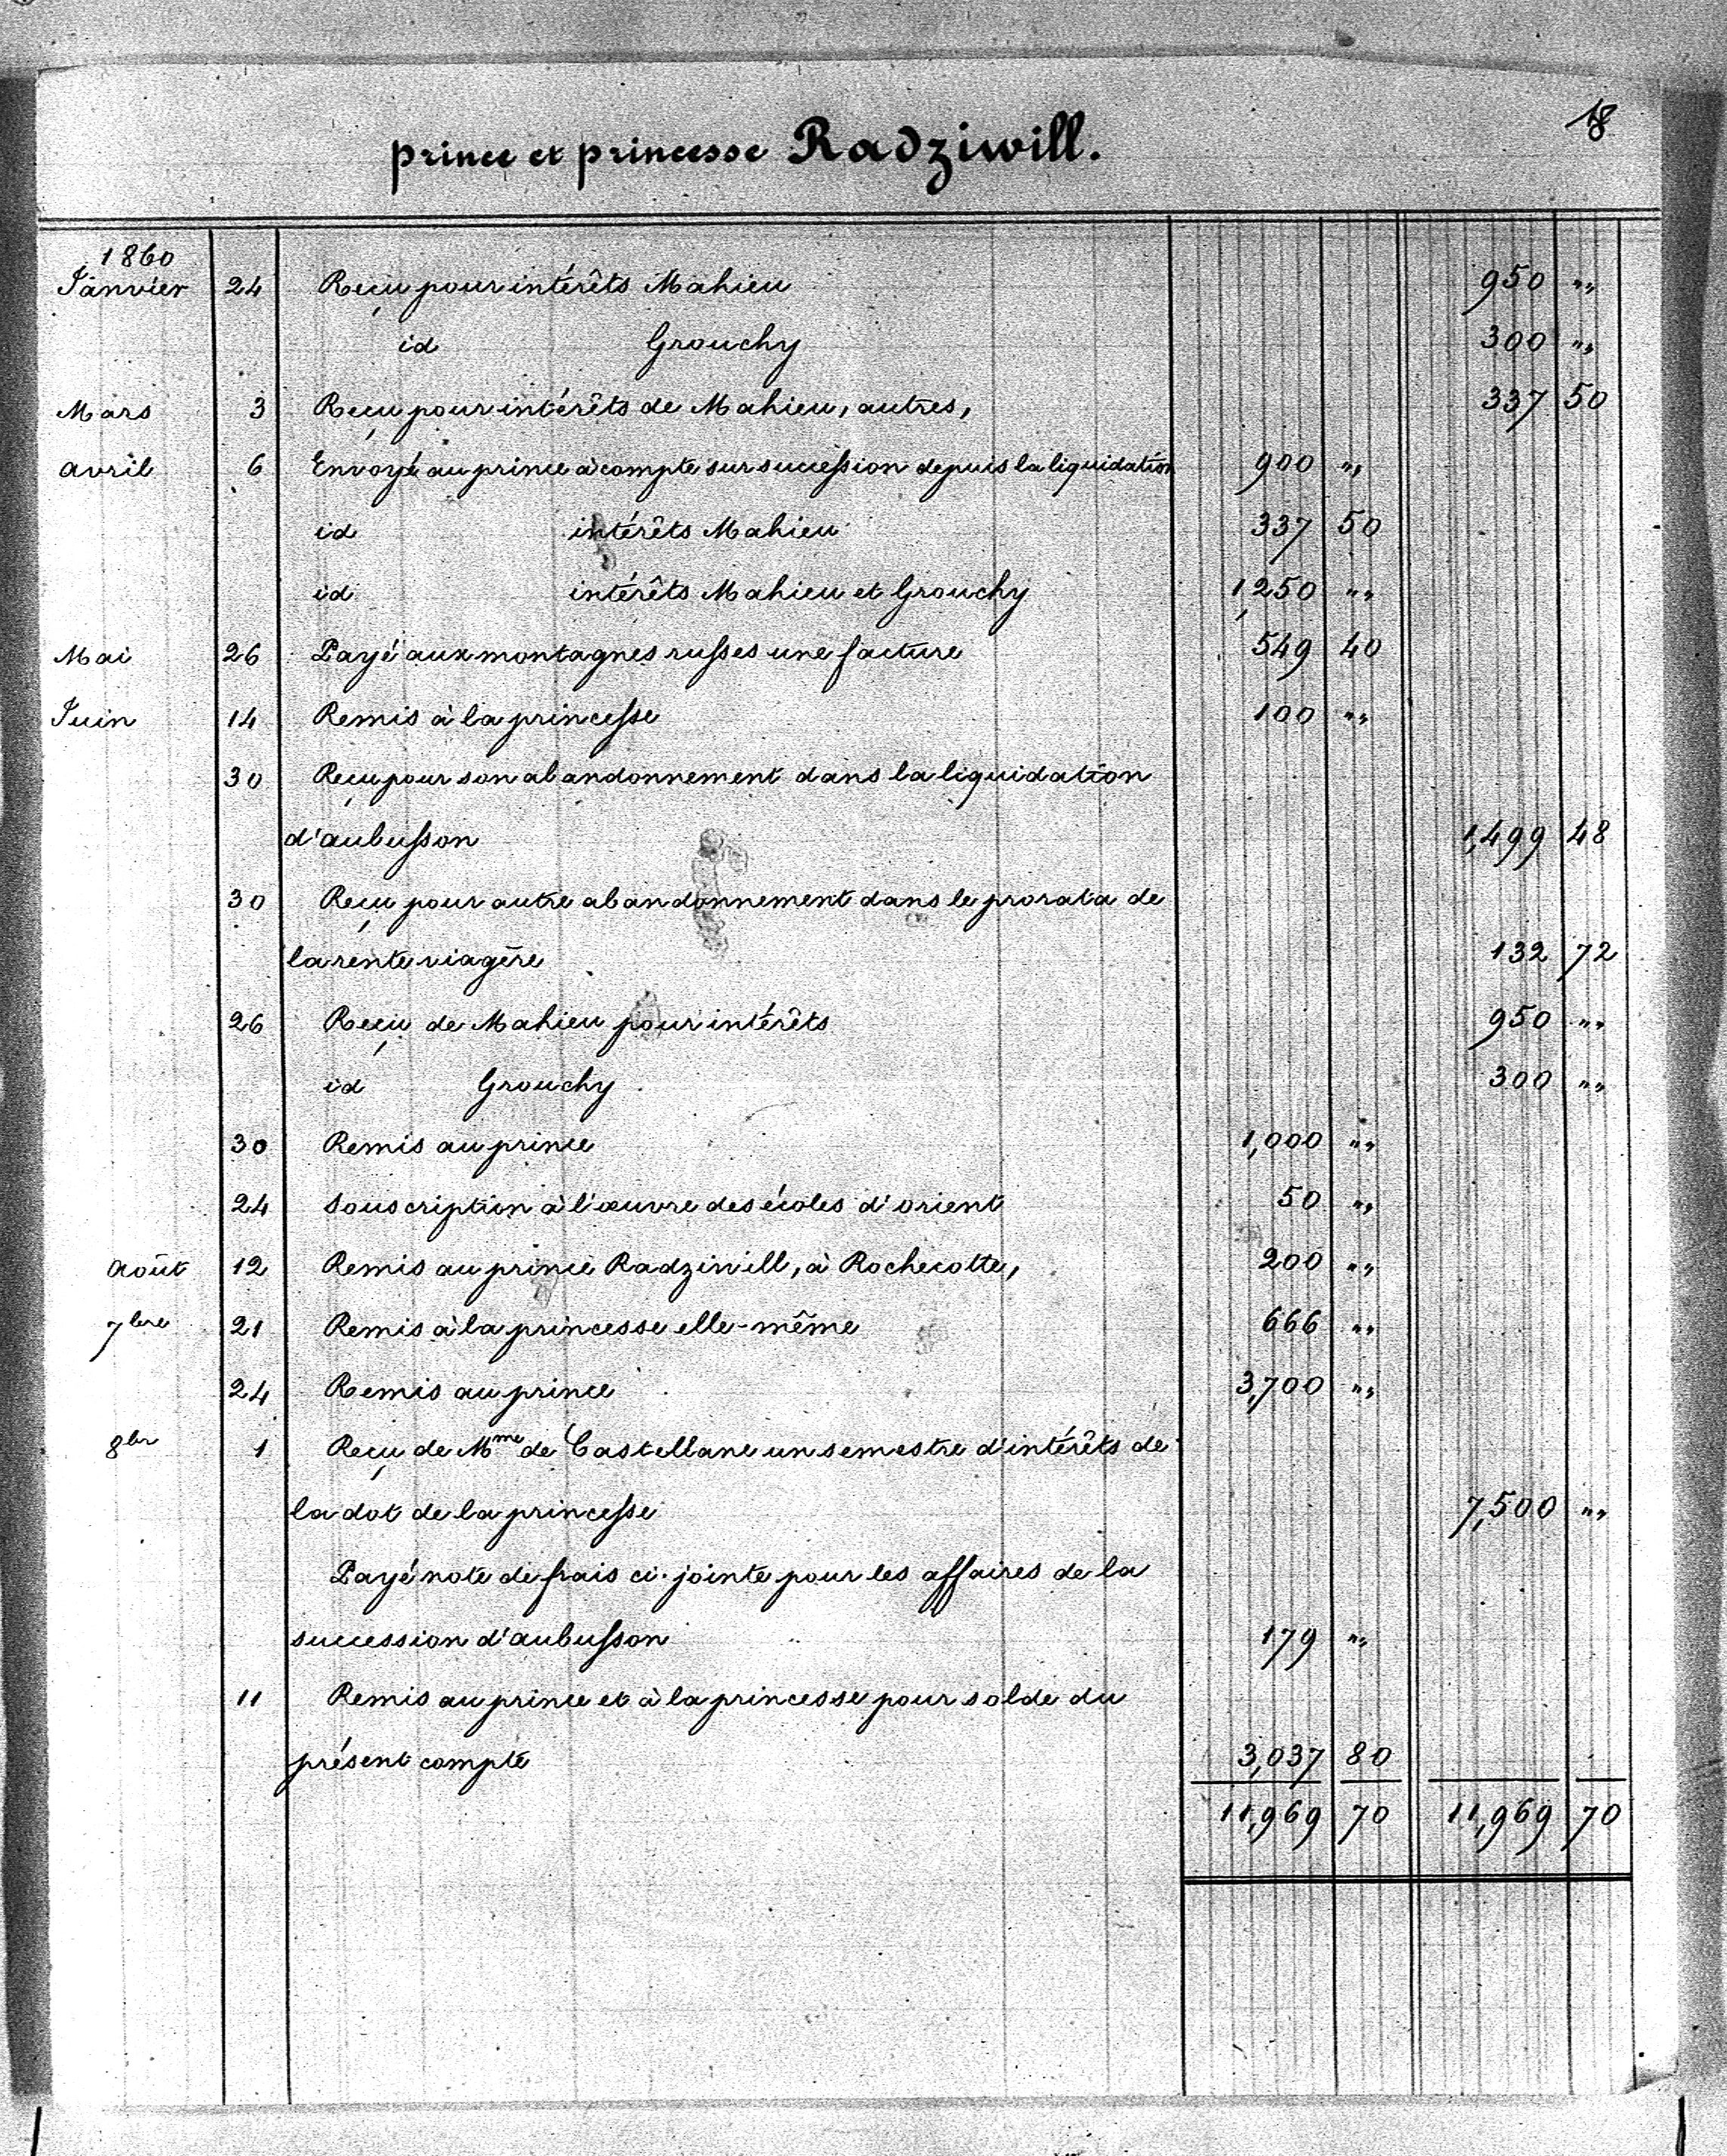 18
prince et princesse Radziwill.
1860
Janvier 24 Reçu pour intérêts Mahieu 950 "
id Grouchy 300 "
Mars 3 Reçu pour intérêts de Mahieu, autres, 337 50
avril 6 Envoyé au prince à compte sur succession depuis la liquidation 900 "
id intérêts Mahieu 337 50
id intérêts Mahieu et Grouchy 1,250 "
Mai 26 Payé aux montagnes russes une facture 549 40
Juin 14 Remis à la princesse 100 "
30 Reçu pour son abandonnement dans la liquidation
d'aubusson 1,499 48
30 Reçu pour autre abandonnement dans le prorata de
la rente viagère 132 72
26 Reçu de Mahieu pour intérêts 950 "
id Grouchy 300 "
30 Remis au prince 1,000 "
24 Souscription à l'œuvre des écoles d'orient 50 "
août 12 Remis au prince Radziwill, à Rochecotte, 200 "
7bre 21 Remis à la princesse elle-même 666 "
24 Remis au prince 3,700 "
8br 1 Reçu de Mme de Castellane un semestre d'intérêts de
la dot de la princesse 7,500 "
Payé note de frais ci-jointe pour les affaires de la
succession d'aubusson 179 "
11 Remis au prince et à la princesse pour solde du
présent compte 3,037 80
11,969 70 11,969 70